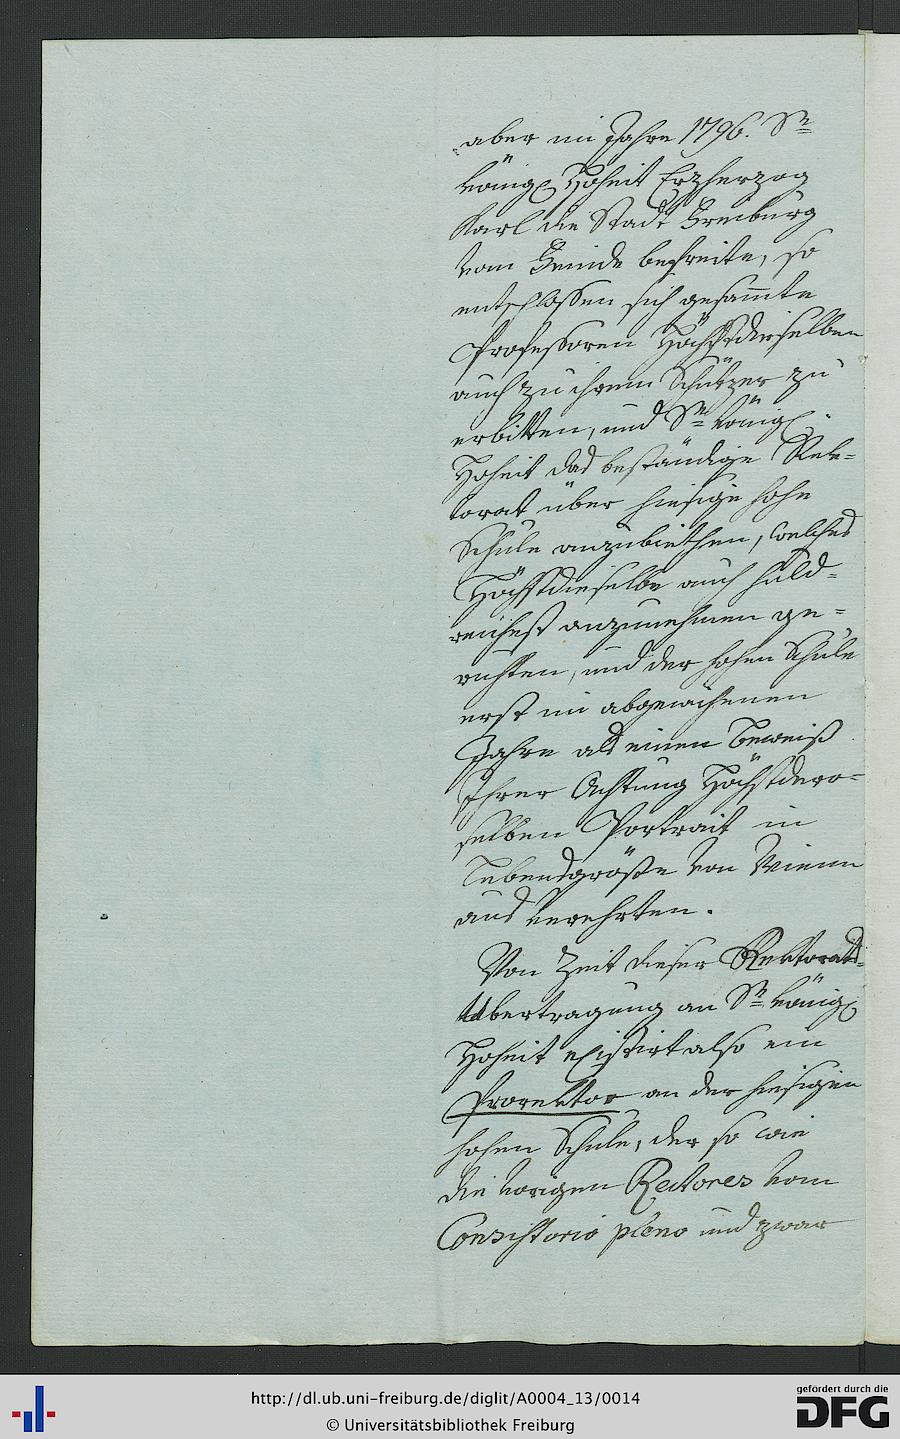 aber im Jahre 1796. Se
königl Hoheit Erzherzog
Karl die Stadt Freiburg
vom Feinde befreite, so
entschlossen sich gesammte
Professoren Höchstdieselben
auch zu ihrem Schützer zu
erbitten, und Sr königl.
Hoheit das beständige Rek-
torat über hiesige hohe
Schule anzubiethen, welches
Höchstdieselbe auch huld-
reichest anzunehmen ge-
ruhten, und der hohen Schule
erst im abgewichenen
Jahre als einen Beweiß
Ihrer Achtung Höchstdero-
selben Portrait in
Lebensgröße von Wienn
aus verehrten.
Von Zeit dieser Rektorats-
Übertragung an Sr königl
Hoheit existirt also ein
Prorektor an der hiesigen
hohen Schule, der so wie
die vorigen Rectores vom
Consistorio pleno und zwar
gefördert durch die
DFG
http://dl.ub.uni-freiburg.de/diglit/A0004_13/0014
© Universitätsbibliothek Freiburg